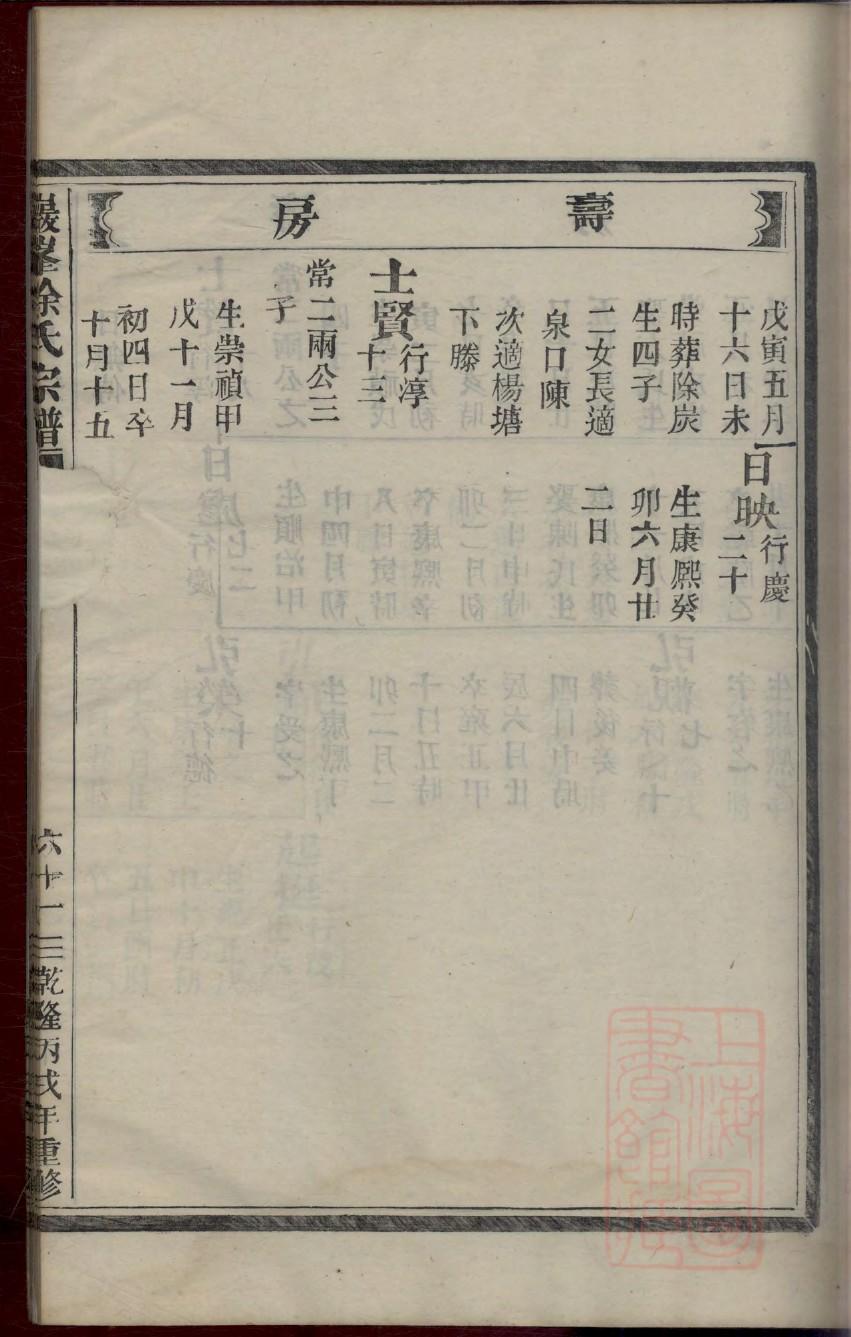 壽房
戊寅五月
十六日未
時葬除炭
生四子
二女長適
泉口陳
次適楊塘
下滕
士賢行淳
十三
常二兩公三
子
生崇禎甲
戌十一月
初四日卒
十月十五
日映行慶
二十
生康熈癸
卯六月廿
二日
巖峯徐氏宗譜
六十一
三乾隆丙戌年重修
上海圖
書館藏